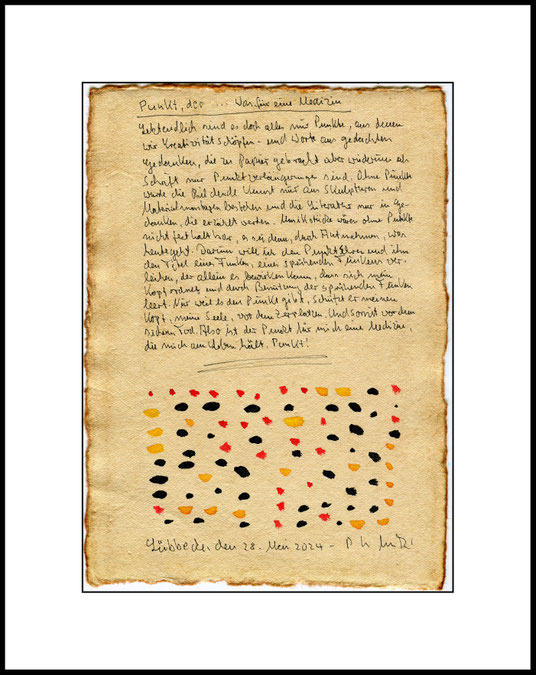 Punkt, der .... Was für eine Medizin
Letztendlich sind es doch alles nur Punkte, aus denen
wir Kreativität schöpfen - und Worte aus gedachten
Gedanken, die zu Papier gebracht aber wiederum als
Schrift nur Punktverlängerungen sind. Ohne Punkte
würde die Bildende Kunst nur aus Skulpturen und
Materialmontagen bestehen und die Literatur nur in Ge-
danken, die erzählt werden. Musikstücke wären ohne Punkte
nicht festhaltbar, es sei denn, durch Aufnahmen, was
heute geht. Darum will ich den Punkt ehren und ihm
den Titel eines Funken, eines sprühenden Funkens ver-
leihen, der allein es bewirken kann, dass sich mein
Kopf ordnet und durch Benutzung der sprühenden Funken
leert. Nur weil es den Punkt gibt, schützt er meinen
Kopf, meine Seele, vor dem Zerplatzen. Und somit vor dem
sicheren Tod. Also ist der Punkt für mich eine Medizin,
die mich am Leben hält. Punkt!
Lübbecke, den 28. Mai 2024 -